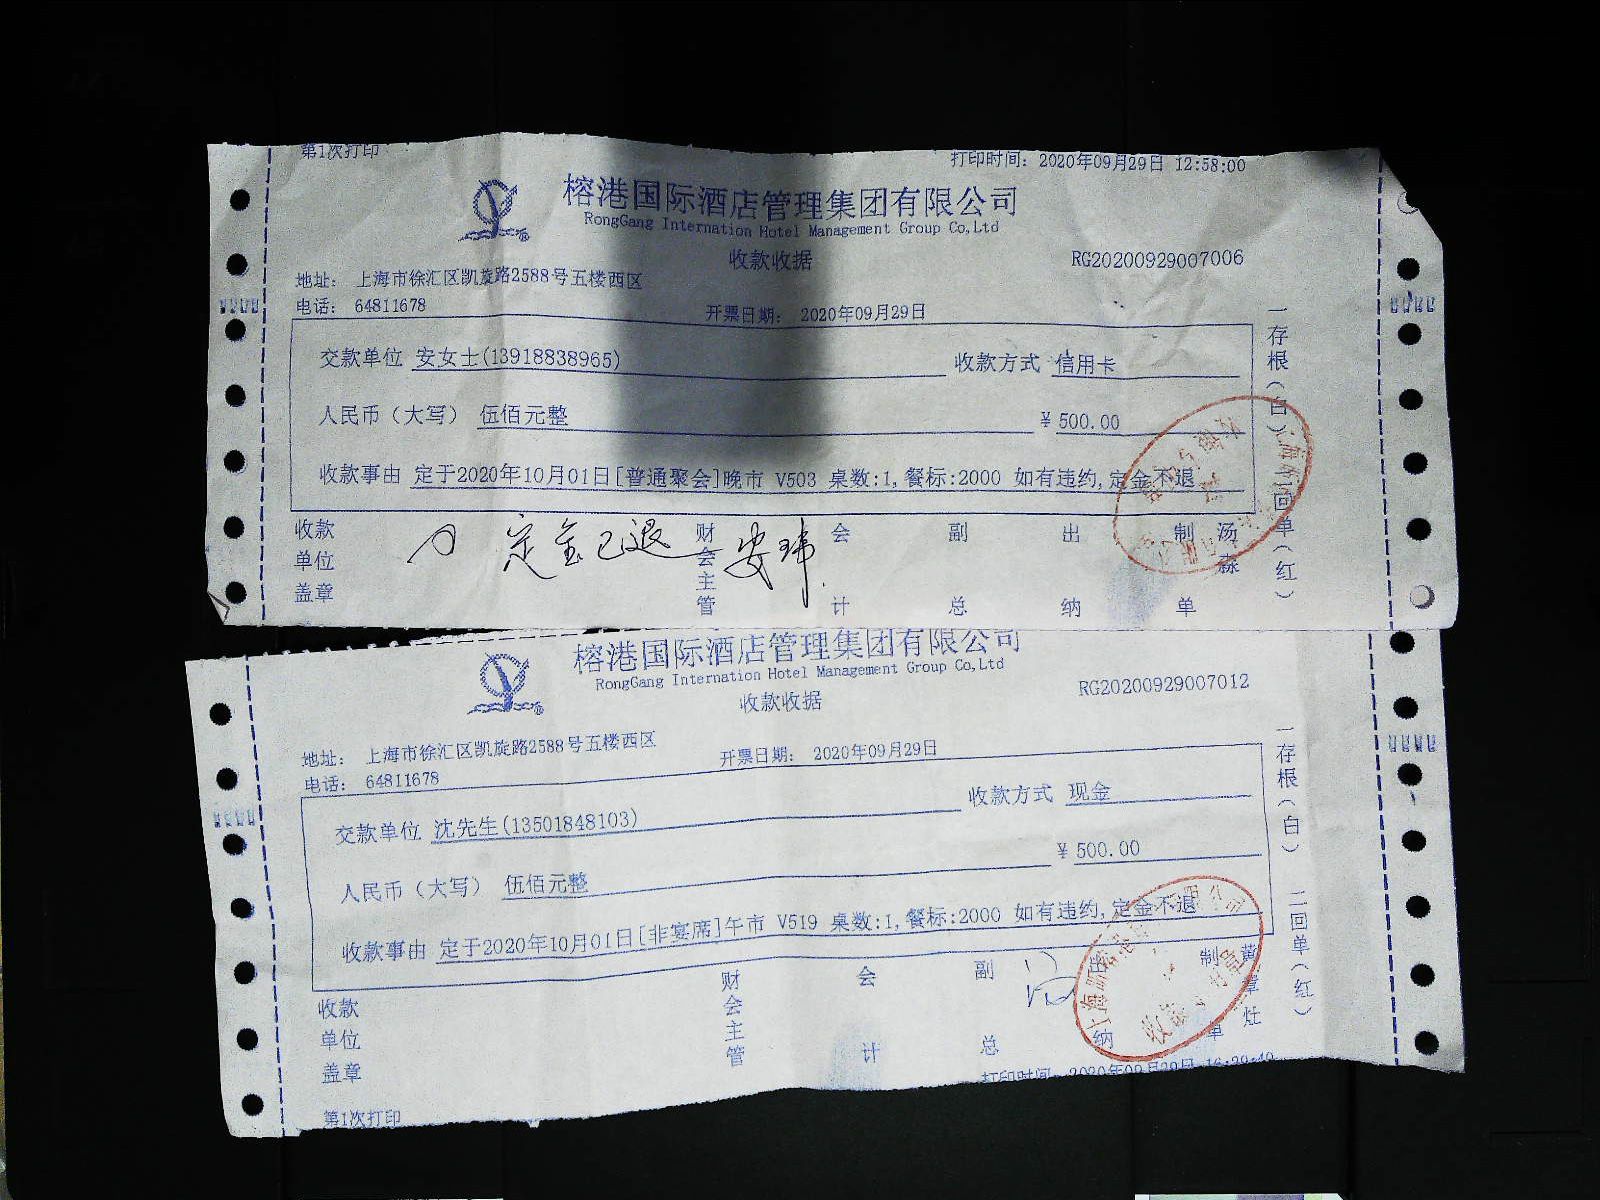 第1次打印 打印时间: 2020年09月29日 12:58:00
榕港国际酒店管理集团有限公司
RongGang Internation Hotel Management Group Co,Ltd
收款收据 RG20200929007006
地址: 上海市徐汇区凯旋路2588号五楼西区
电话: 64811678 开票日期: 2020年09月29日
交款单位 安女士(13918838965) 收款方式 信用卡
人民币(大写) 伍佰元整 ¥500.00
收款事由 定于2020年10月01日[普通聚会]晚市 V503 桌数:1,餐标:2000 如有违约,定金不退
一存根(白) 二回单(红)
收款单位盖章 财会主管 会计 副总 出纳 制单 汤森
定金已退 安玮
榕港国际酒店管理集团有限公司
RongGang Internation Hotel Management Group Co,Ltd
收款收据 RG20200929007012
地址: 上海市徐汇区凯旋路2588号五楼西区
电话: 64811678 开票日期: 2020年09月29日
交款单位 沈先生(13501848103) 收款方式 现金
人民币(大写) 伍佰元整 ¥500.00
收款事由 定于2020年10月01日[非宴席]午市 V519 桌数:1,餐标:2000 如有违约,定金不退
一存根(白) 二回单(红)
收款单位盖章 财会主管 会计 副总 出纳 制单
第1次打印 打印时间: 2020年09月29日